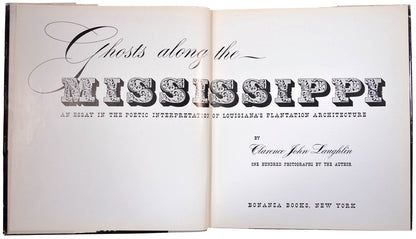 Ghosts along the
MISSISSIPPI
AN ESSAY IN THE POETIC INTERPRETATION OF LOUISIANA'S PLANTATION ARCHITECTURE
BY
Clarence John Laughlin
ONE HUNDRED PHOTOGRAPHS BY THE AUTHOR
BONANZA BOOKS, NEW YORK